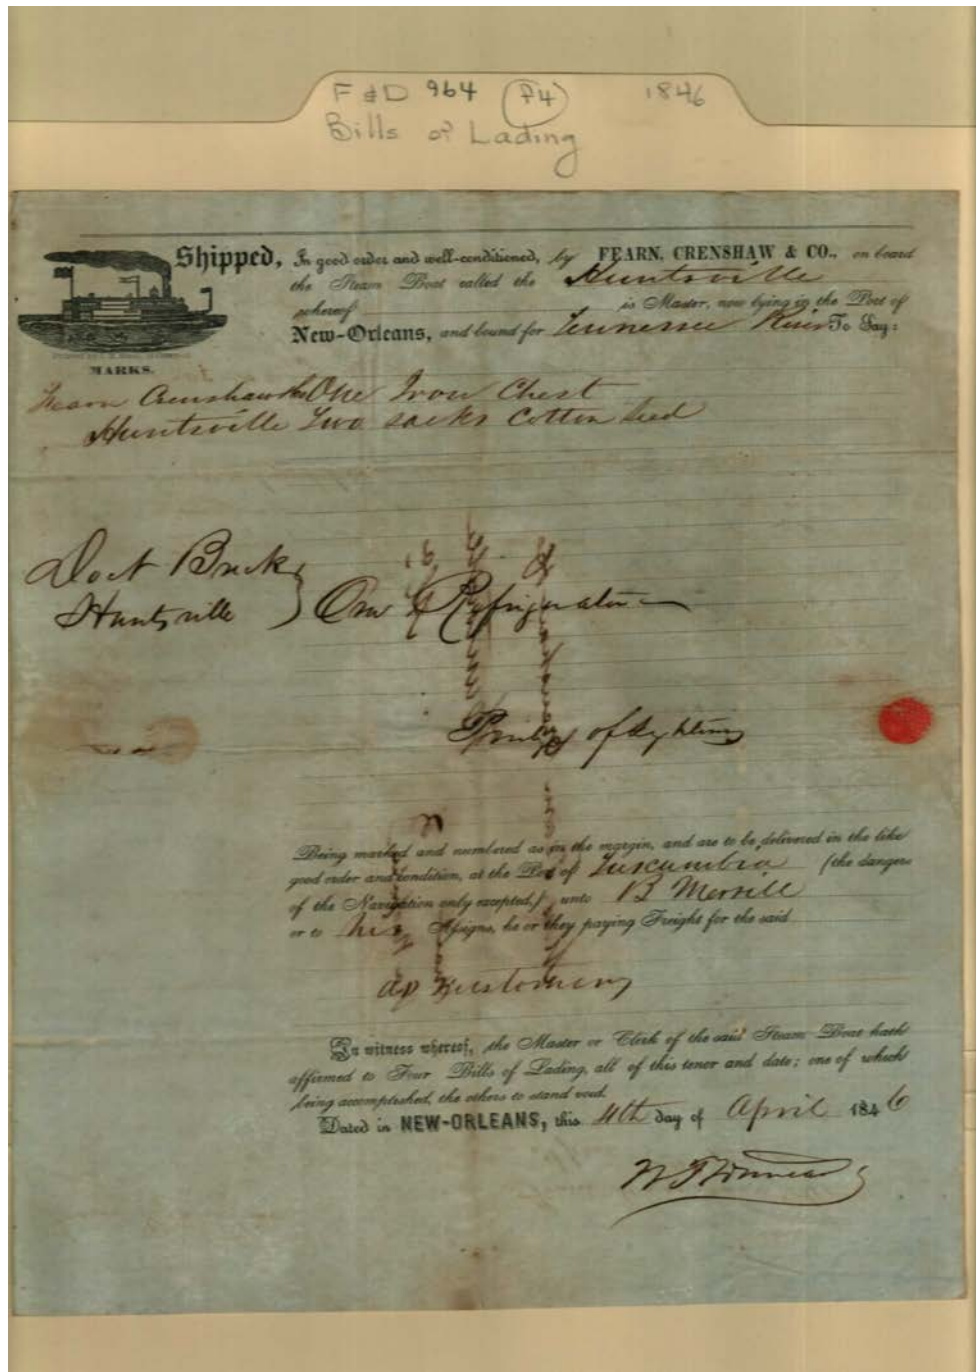 F & D 964 P4 1846
Bills of Lading
Shipped, In good order and well-conditioned, by FEARN, CRENSHAW & CO., on board
the Steam Boat called the Huntsville
whereof is Master, now lying in the Port of
New-Orleans, and bound for Tennessee River To Say:
MARKS.
Fearn Crenshaw One Iron Chest
Huntsville Two sacks Cotton Seed
Doct
Huntsville } One Refrigerator
Privilege of
Being marked and numbered as in the margin, and are to be delivered in the like
good order and condition, at the Port of Tuscumbia (the dangers
of the Navigation only excepted,) unto B Merrill
or to his Assigns, he or they paying Freight for the said
as Customary
In witness whereof, the Master or Clerk of the said Steam Boat hath
affirmed to Four Bills of Lading, all of this tenor and date; one of which
being accomplished, the others to stand void.
Dated in NEW-ORLEANS, this 4th day of April 1846